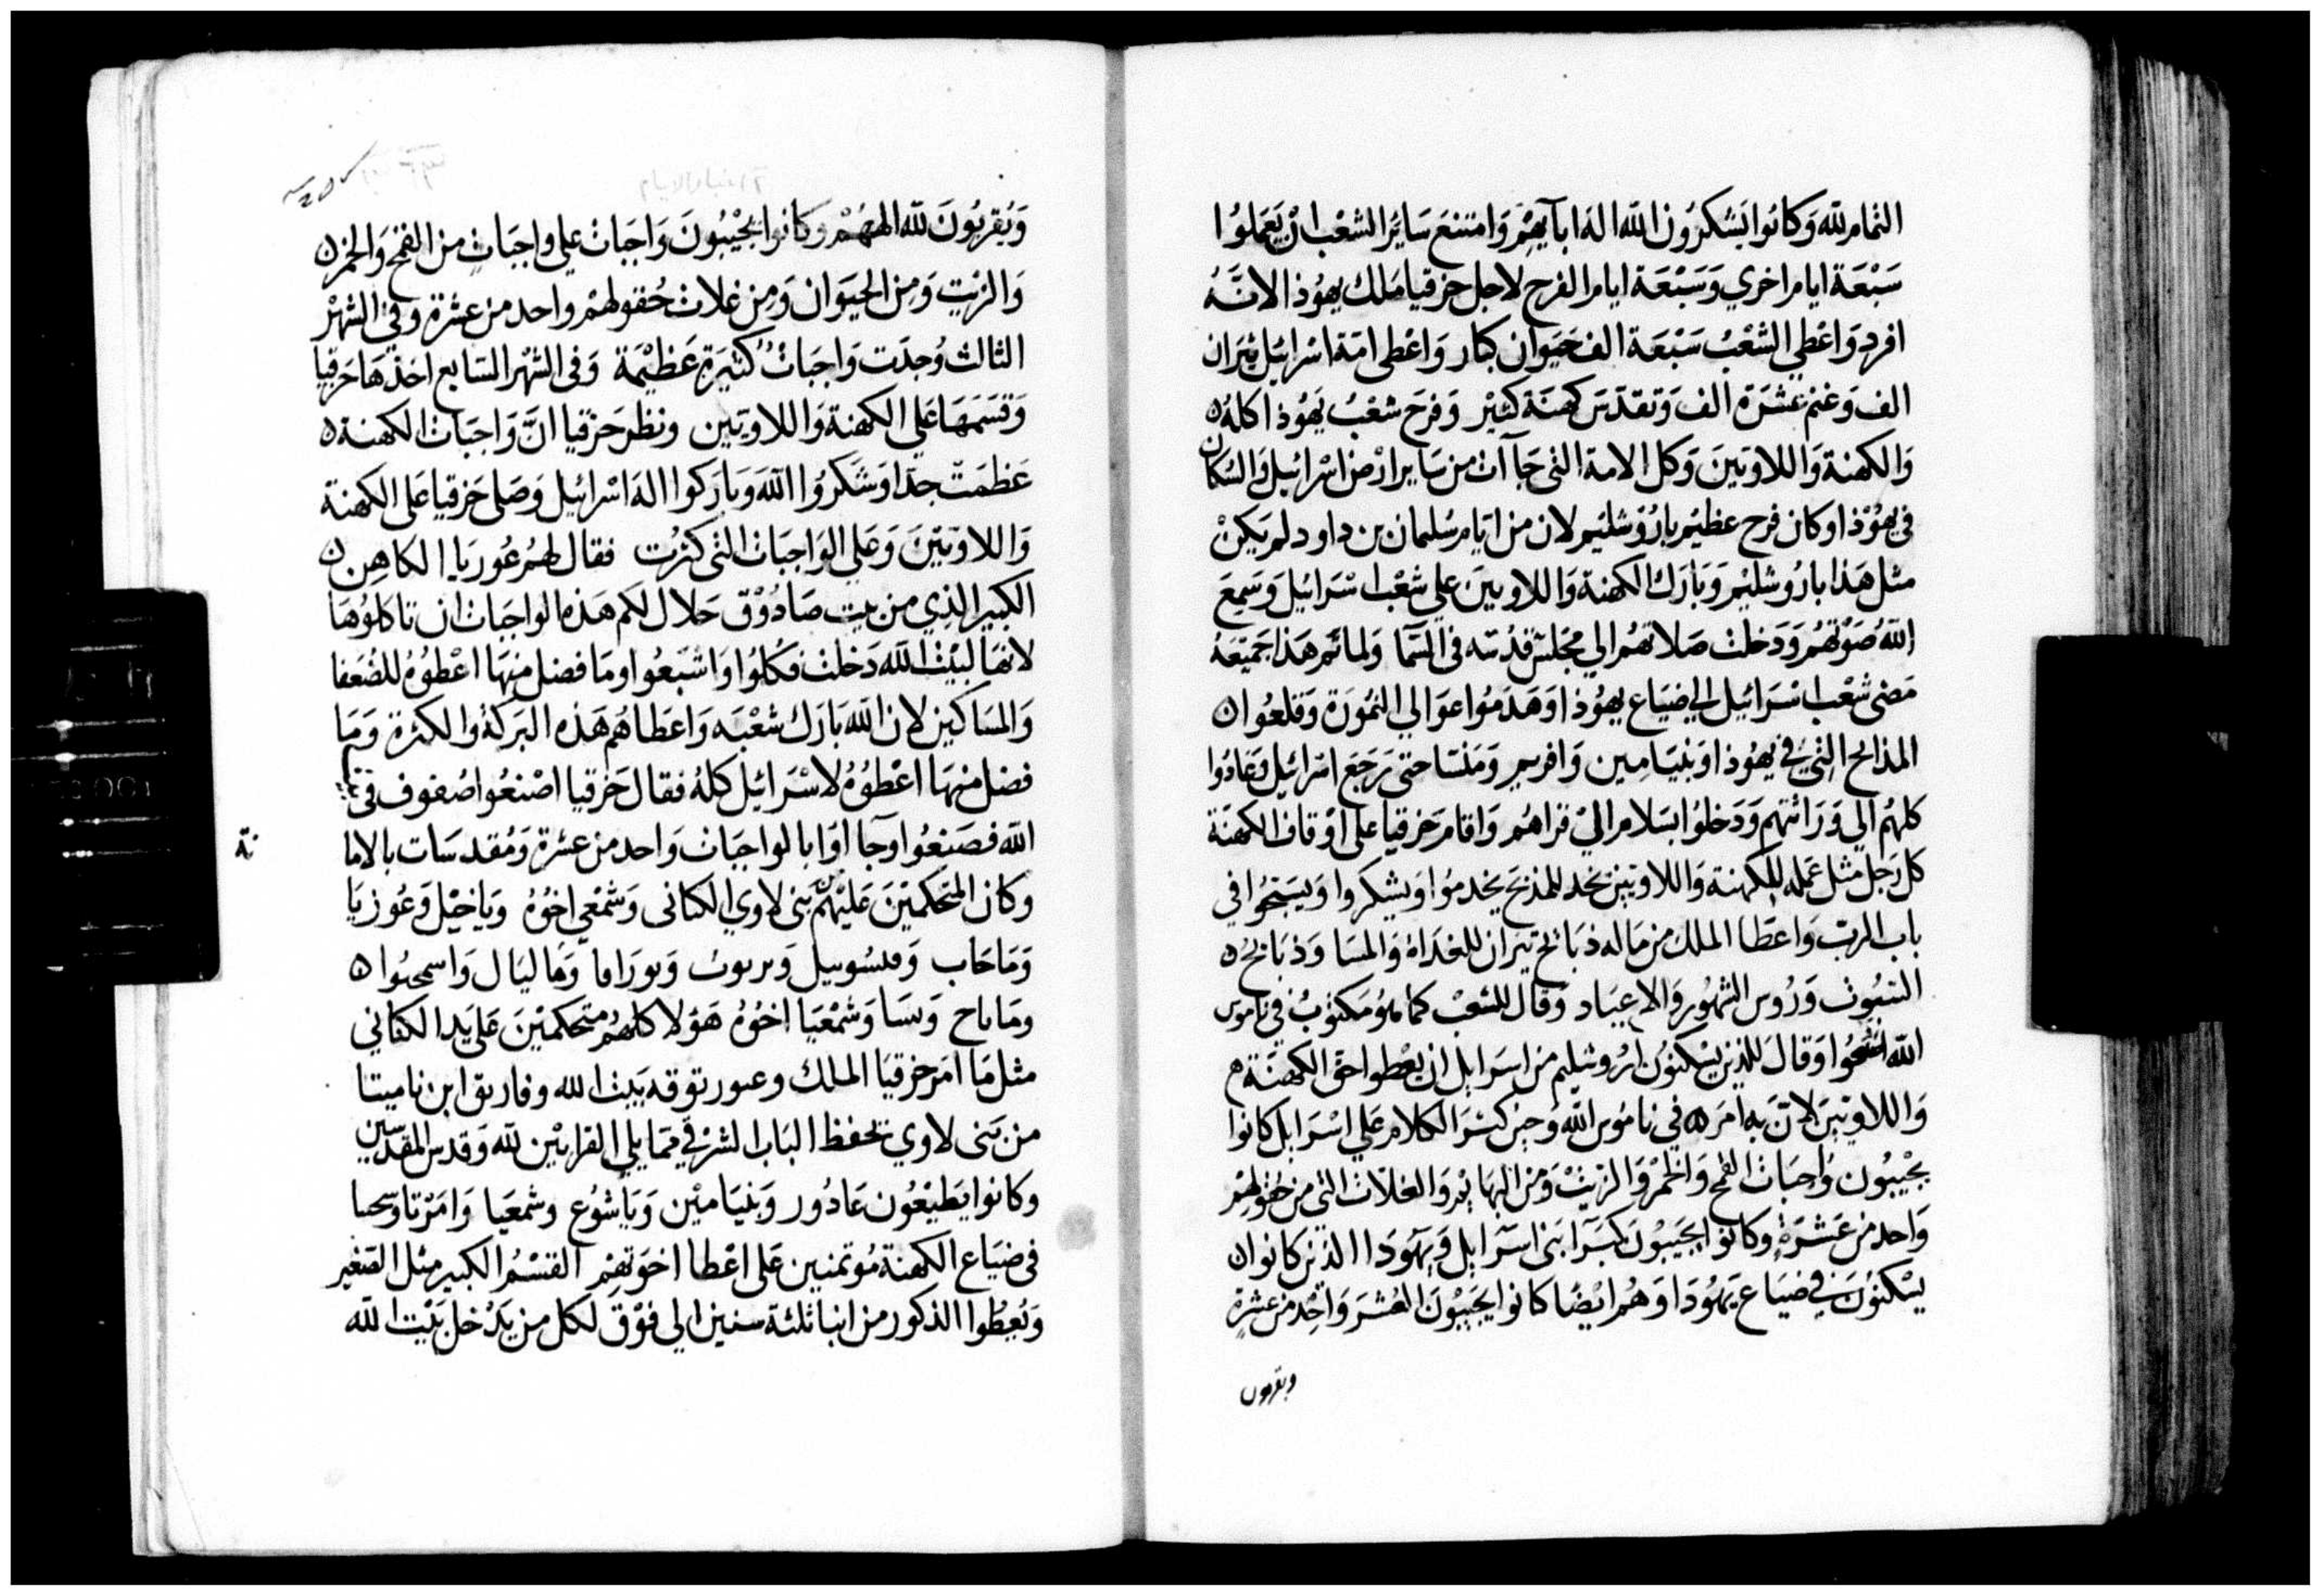 التمام لله وَكانُوا يَشكرُون الله الهَ ابآيِهِم وَامتنعَ سَايرُ الشعْب انْ يَعَملوُا
سَبْعَة ايام اخري وَسَبْعَة ايام الفرح لاجل حزقيا مَلك يهُوذا لانَّهُ
افرد وَاعْطي الشعْبُ سَبْعَة الف حَيَوان كبار وَاعْطى امَة اسْرائيل ثِيَران
الف وَغنم عشرَة الف وَتقدّسَ كهنَة كثِيْر وَفرحَ شعْبُ يَهُوذا كلهُ ٥
وَالكهنة وَاللاويّينَ وَكل الامة التى جَاآت من سَاير ارْض اسْرائيل وَالسُكان
في يهُوْذا وَكان فرح عظيْم بارُوْشليم لان من ايام سُليمان بن داود لم يَكنْ
مثل هَذا بارُوشليْم وَبَارَك الكهنة وَاللاويينَ علي شعْب اسْرَائيل وَسَمِعَ
اللهُ صَوْتهُم وَدَخلت صَلاتهُم الي مَجلسْ قدُسه فى السّما وَلما تم هَذا جَميْعَهُ
مَضى شعْب اسْرَائيل الي ضيَاع يهُوذا وَهَدَمُوا عَوَالي النمُورَة وَقلعُوا ن
المذابح التيْ في يهُوذا وَبنيَامِين وَافريم وَمَنسَا حتى رَجَعَ اسْرائيل وَعَادُوا
كلهُم الي وَرَاثتهِم وَدَخلوُا بسَلام اليْ قراهُم وَاقامَ حَزقيا على اوْقاف الكهنَة
كل رَجل مثل عَمله للكهنة وَاللاويين نجد للمذبَح يخدموُا وَيشكروا وَيسَبحُوا في
باب الربّ وَاعطَا الملك من مَاله ذبَائح ثيران للغدَاة وَالمسَا وَذبَائحُ ٥
السُبُوت وَرُوس الشهُور وَالاعيَاد وَقال للشعْب كما هُوَ مَكتوُبُ في نامُوس
الله وَقالَ للذين يَسْكنوُن ارُوشليم من اسرَايل ان يعْطوا حق الكهنَة م
وَاللاويّينَ لانّ به امَر الله في نامُوس الله وَحين كسَرَ الكلام عَلي اسْرَايل كانوُا
يجْيبُون وَاجبَات القمح وَالخمرْ وَالزيتْ وَمن البهَايم وَالغلاّت التي من حقولهِمْ
وَاحد من عَشرَةٍ وكانوا يجيَبُونَ كبَرَآ بَنى اسَرآيل وَيهَودَا الذين كانوا ن
يسْكنوُنَ في ضيَاع يَهوُدَا وَهُم ايْضًا كانوا يَجيَبوُنَ العُشرَ وَاحِد من عشرةٍ
ويقربون
٢ اخبار الايام
وَيُقربُونَ لله الههُمْ وكانوا يَجْيبُونَ وَاجَبَات علي واجبَاتٍ من القمح وَالخمر ن
وَالزيت وَمن الحيَوان وَمِن غلات حُقولهمْ واحد من عشرة وفي الشهْر
الثالث وُجدَت وَاجَباتُ كثيَرة عَظيْمَة وَفى الشهْر السَابع اخذهَا حَزقيا
وَقسَمهَا عَلي الكهنة وَاللاويّين ونظر حَزقيا انَّ وَاجبَات الكهنة ٥
عَظمَتْ جدّا وَشكرُوا اللهَ وَبارَكوا الهَ اسْرائيل وَصَلى حَزقيا عَلى الكهنة
وَاللاويّيْنَ وَعَلي الوَاجبَات التى كثرُت فقال لهُم عُورَيا الكاهِن ن
الكبير الذي من بيت صَادُوْق حَلال لكم هَذه الواجبَات ان تاكلوُهَا
لانهَا لبيْت الله دَخلت فكلوُا وَاشبَعُوا ومَا فضل منهَا اعْطوُهُ للضُعَفا
وَالمسَاكين لان الله بَارَك شعْبَه وَاعَطاهُم هَذه البَركةُ وَالكثرة وَمَا
فضل منهَا اعْطوُهُ لاسْرَائيل كلهُ فقال حَزقيا اصْنعُوا صُفوف في بيت
الله فصَنعُوا وَجآاوْا بالواجبَات وَاحد من عشرة وَمُقدسَات بالاما
وكان المتحكميْنَ عَليْهُم بَنى لاوي الكنانى وَشمْعي اخوُهُ وَياخيْل وَعُوزيَا
وَمَاحَاب وَ وَ وَ وَماليَال وَ
ومَاناح وَ وَشمْعَيا اخوُهُ هَؤلا كلهُم متحكميْنَ عَلي يَد الكنانى
مثل مَا امَر حَزقيَا الملك وعبور توقد بَيت الله وفاريق ابن ناميتا
من بَنى لاوي يحفظ البَاب الشرْقي ممَا يلي القرابيْن لله وَقدس المقدّسين
وكانوا يَطيْعُون عَادُور وَبنيَاميْن وَيَاشوُع وشمعَيا وَامَرْيا
في ضيَاع الكهنة مُوتمنين عَلى اعْطا اخوَتهِمِ القسْمُ الكبير مثل الصَغير
وَيعُطُوا الذكور من ابنا ثلثة سنين الي فوْق لكل من يَدْخل بَيْت الله